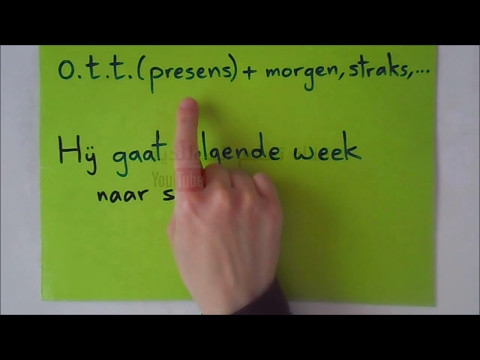 O.t.t. (presens) + morgen, straks,...
Hij gaat week
naar
YouTube